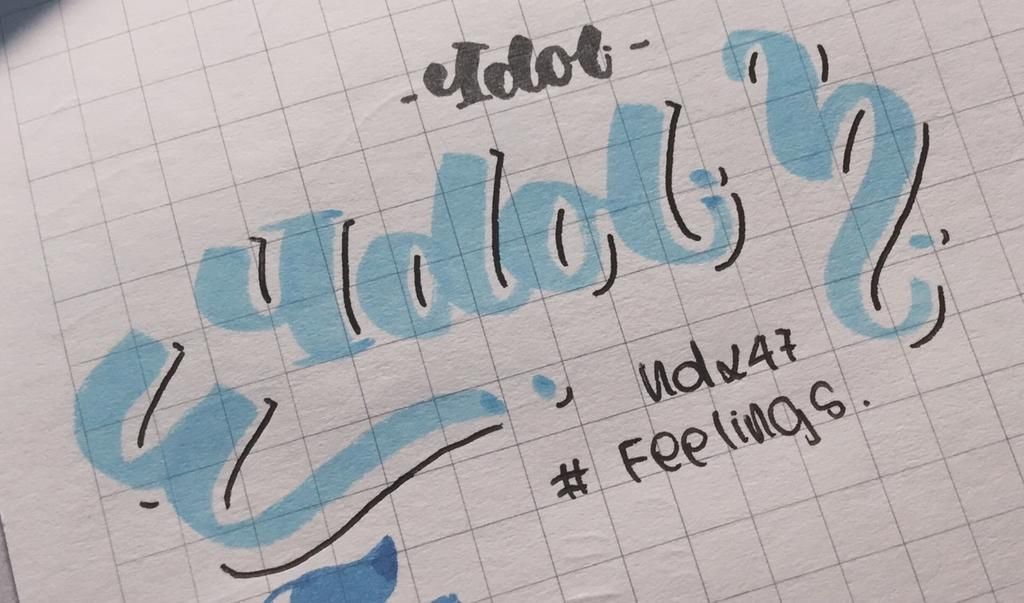 -Idol-
Idol
ndx47
# Feelings.